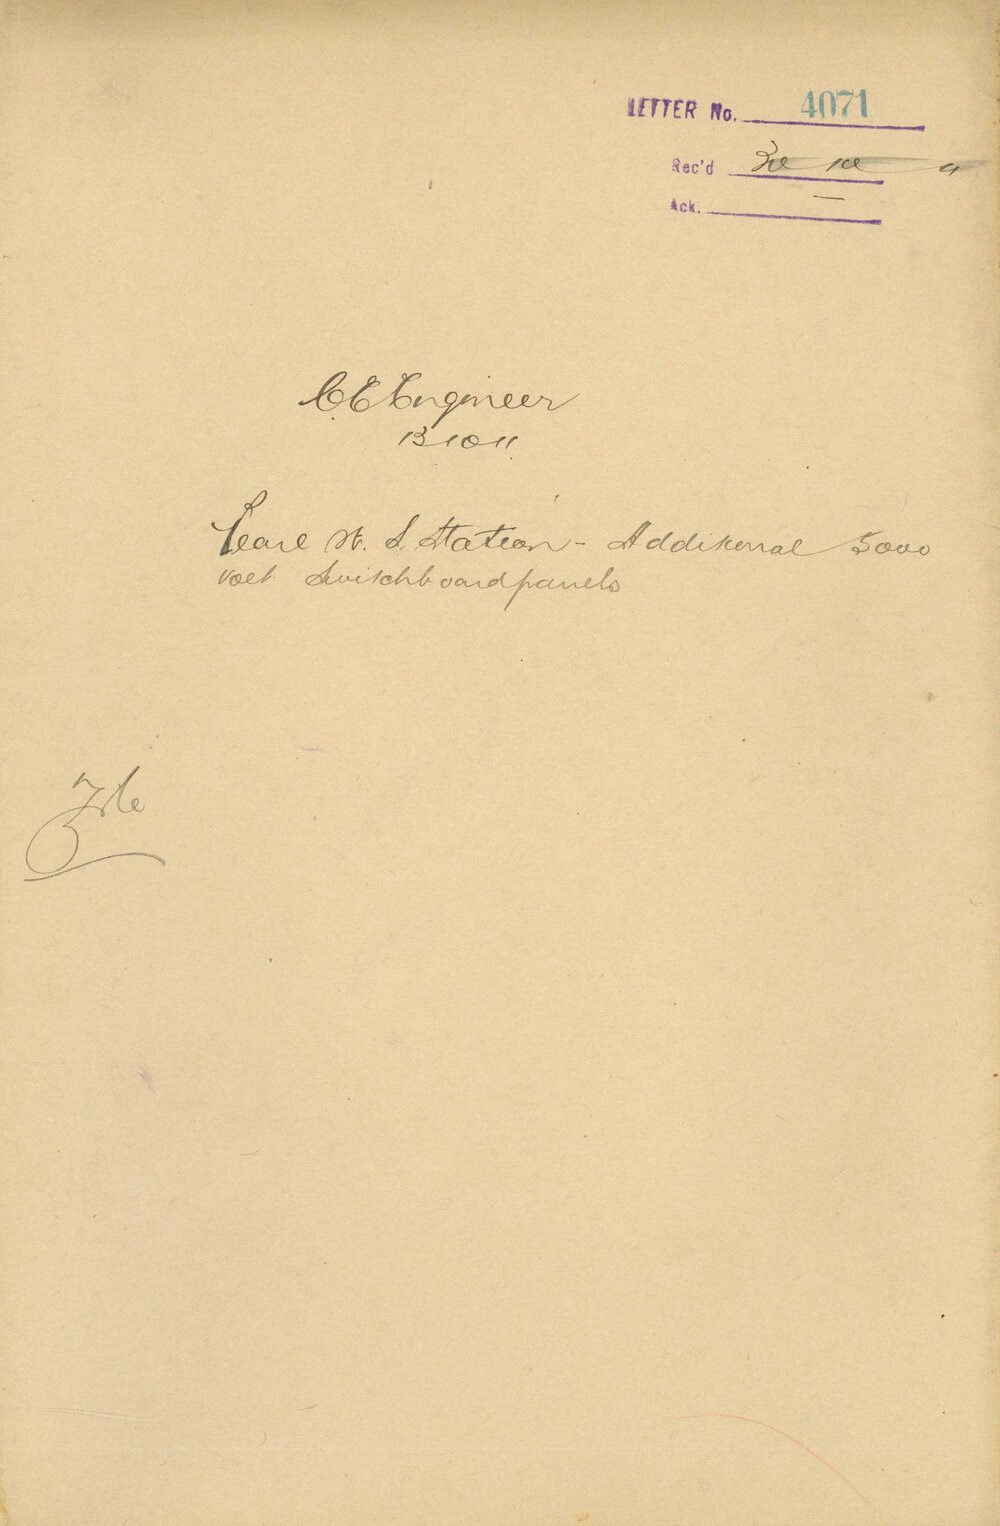 LETTER No. 4071
Rec'd 30 10 11
Ack.
C.E Engineer
13 10 11
St. S. Station - Additional 5000
volt Switchboard panels
File